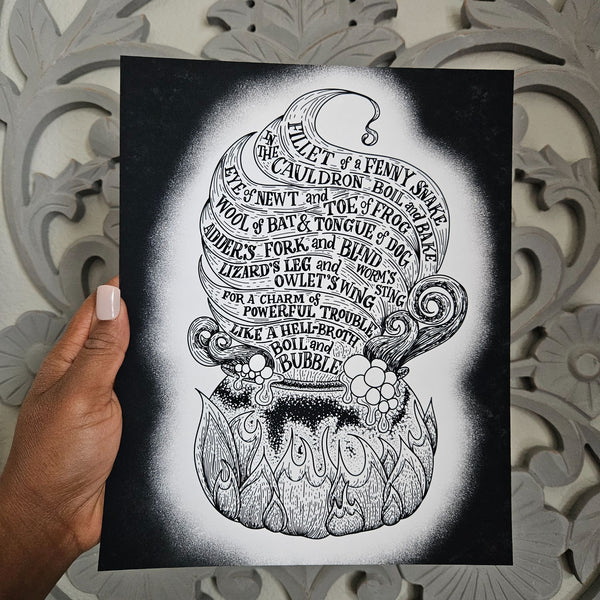 FILLET of a FENNY SNAKE
IN THE CAULDRON BOIL and BAKE
EYE of NEWT and TOE of FROG
WOOL of BAT & TONGUE of DOG
ADDER'S FORK and BLIND WORM'S STING
LIZARD'S LEG and OWLET'S WING
FOR A CHARM of POWERFUL TROUBLE
LIKE A HELL-BROTH
BOIL and BUBBLE